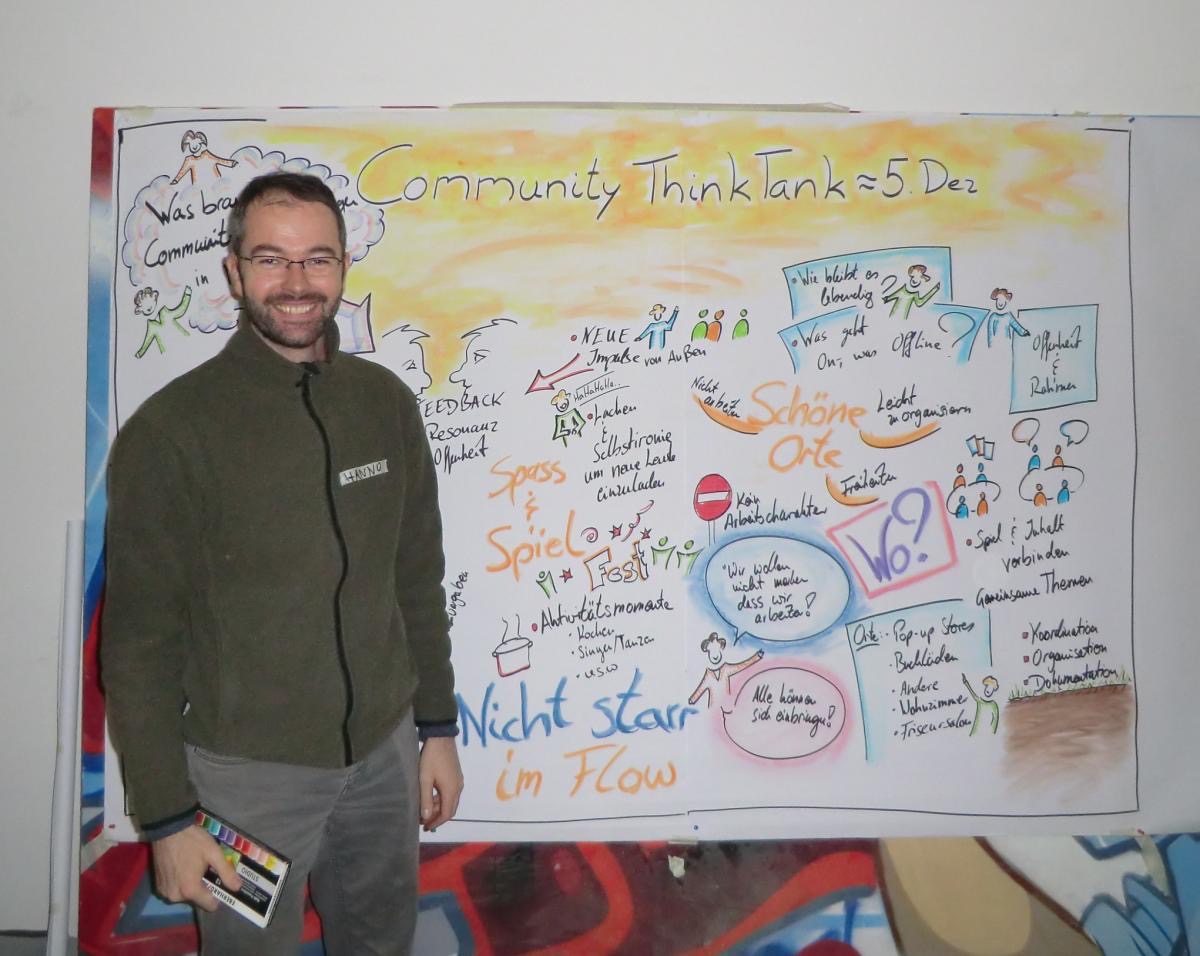 Community ThinkTank ≈ 5. Dez
Was
Community
in
HANNO
FEEDBACK
Resonanz
Offenheit
• NEUE
Impulse von Außen
HaHaHaHa..
• Lachen
&
Selbstironie
um neue Leute
einzuladen
Spass
&
Spiel
Fest
• Aktivitätsmomente
• Kochen
• Singen/Tanzen
• usw
Nicht starr
im Flow
• Wie bleibt es
lebendig?
• Was geht
On, was Offline?
Offenheit
&
Rahmen
Nicht
arbeiten
Schöne
Orte
Leicht
zu organisieren
Freiheiten
Kein
Arbeitscharakter
Wo?
"Wir wollen
nicht merken
dass wir
arbeiten!
Alle können
sich einbringen!
• Spiel & Inhalt
verbinden
Gemeinsame Themen
• Koordination
• Organisation
• Dokumentation
Orte: • Pop-up Stores
• Buchläden
• Andere
Wohnzimmer
• Friseursalon
EBERHARD
STUDIO